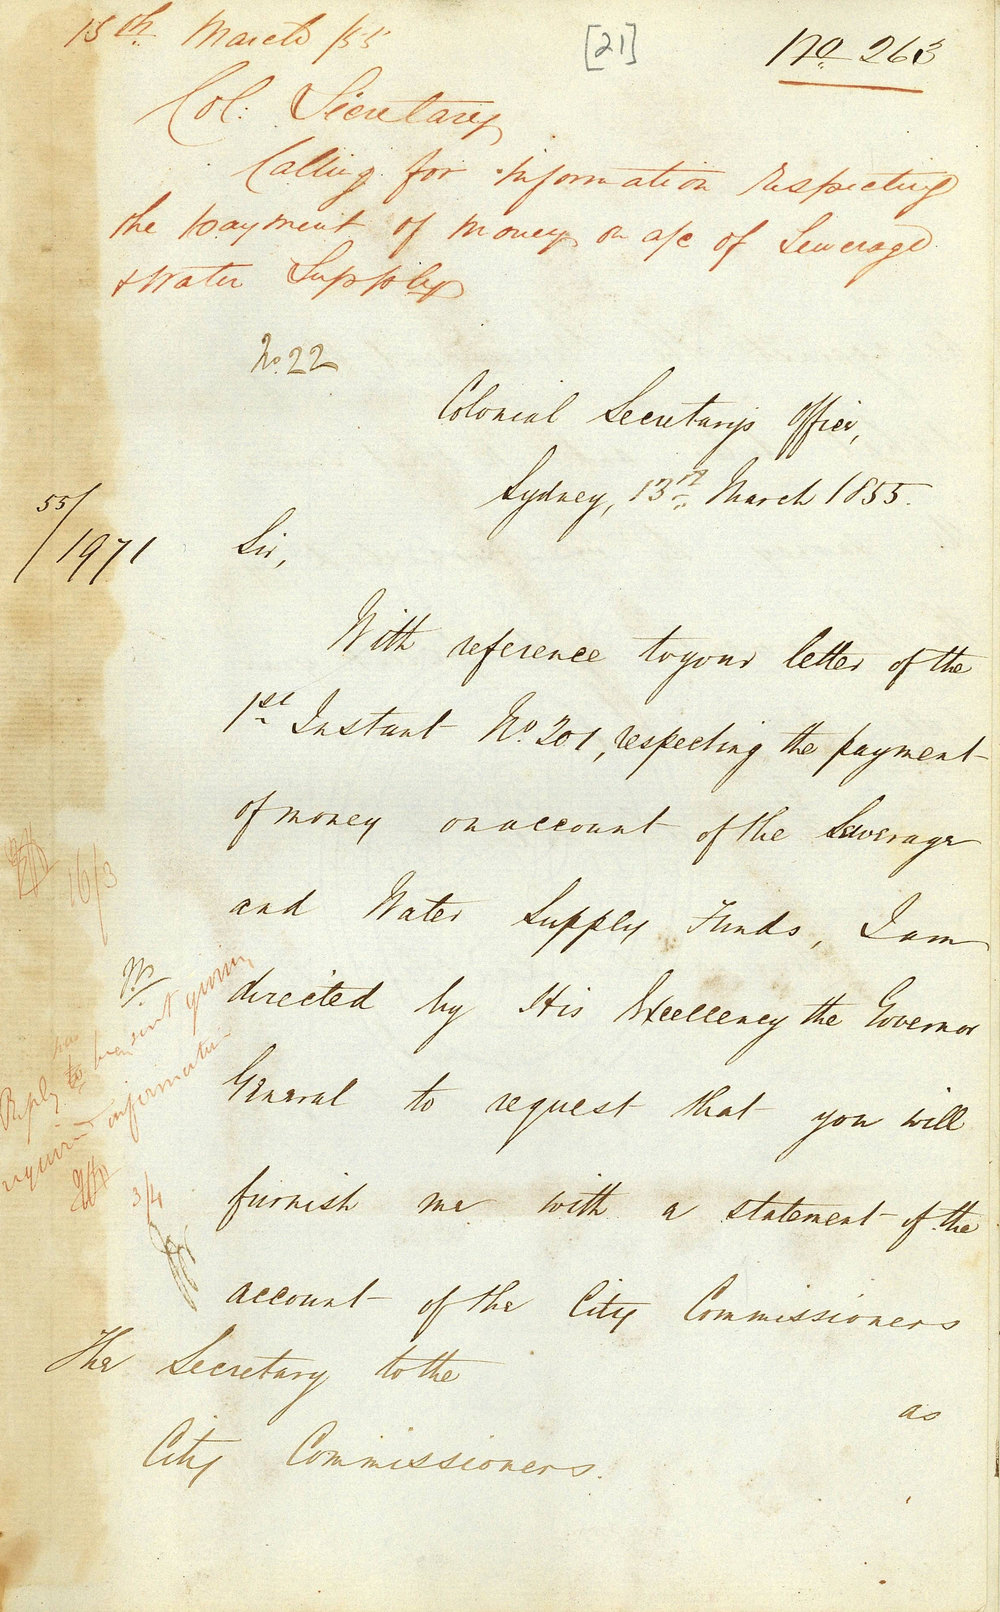 15th March /55
[21]
No 263
Col: Secretary
Calling for information respecting
the payment of money on a/c of Sewerage
& Water Supply
No. 22
Colonial Secretary's Office,
Sydney, 13th March 1855.
55/
/1971
Sir,
With reference to your letter of the
1st Instant No. 201, respecting the payment
of money on account of the Sewerage
and Water Supply Funds, I am
directed by His Excellency the Governor
General to request that you will
furnish me with a statement of the
account of the City Commissioners
as
The Secretary to the
City Commissioners.
16/3
Reply has to been sent giving
required information
3/4